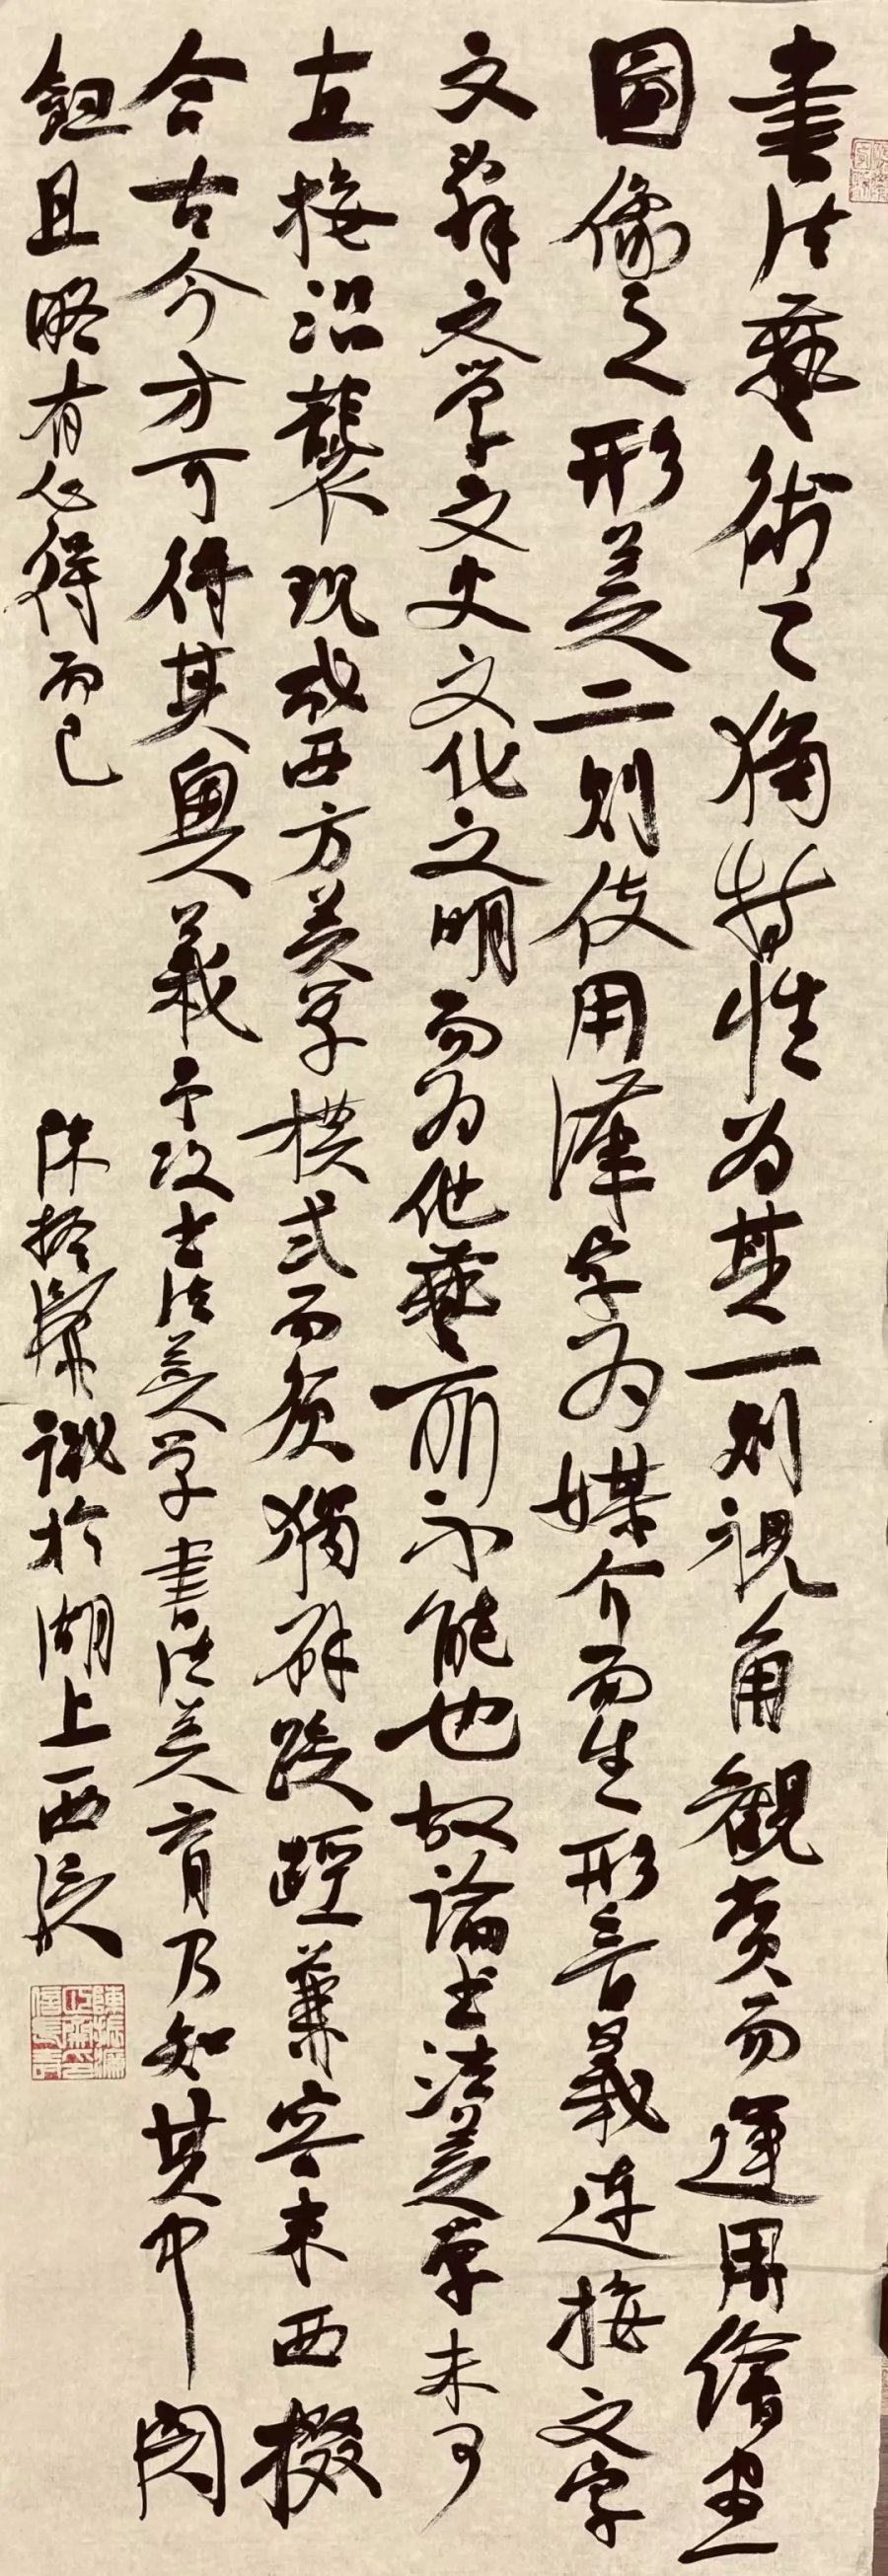 書法藝術之獨特性為其一則視角觀賞而運用繪畫
圖像之形美二則使用漢字為媒介而生形音義連接文字
文辭文學文史文化之明而為他藝所不能也故論書法美學未可
直接沿襲現成西方美學模式而須獨辟蹊徑兼容東西掇
合古今方可得其奧義予攻書法美學書法美育乃知其中關
鈕且略有心得而已
陳振濂識於湖上西泠